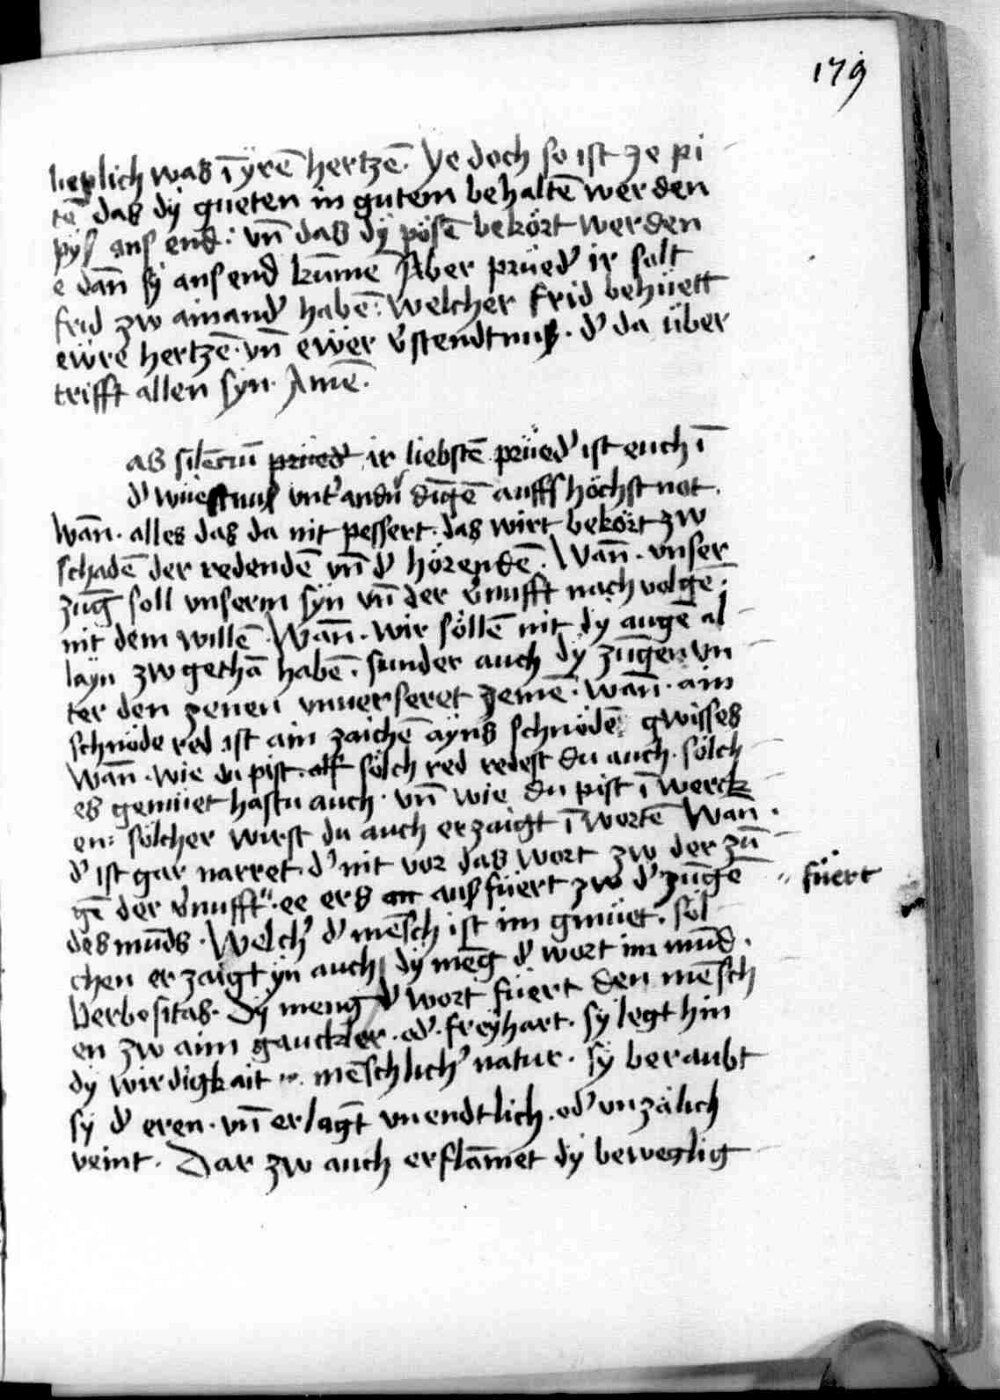 179
lieplich was ī ÿrē hertzē. Ye doch so ist ze pi
tē das dÿ gueten in gutem behaltē werden
pÿs ans end: vn̄ das dÿ pösē bekört werden
e dan̄ sÿ ans end kūme Aber prüed' ir solt
frid zw ainand' habē: welcher frid behüett
ewre hertzē. vn̄ ewer v'stendtnuß. d' da über
trifft allen sÿn. Amē.
as silēciū prüed' ir liebstē prüed' ist euch ī
d' wüestnuß vnt' andn̄ dīgē auffs höchst not.
Wan̄. alles das da nit pessert. das wirt bekört zw
schadē der redendē vn̄ d' hörendē. Wan̄. vnser
zūg soll vnserm sÿn vn̄ der v'nufft nach volgē:
nit dem willē. Wan̄. wir söllē nit dÿ augē al
laÿn zw gethā habē. sunder auch dÿ zūgen vn
ter den zenen vnuerseret zemē. wan̄. ain
schnöde red ist ain zaichē aÿns schnödē gwisses
Wan̄. wie du pist. alß sölch red redest du auch. sölch
es gemüet hastu auch. vn̄ wie du pist ī werck
en: sölcher wirst du auch erzaigt ī wortē Wan̄.
d' ist gar narret. d' nit vor das wort zw der zū
gē der v'nufft. ee ers an ausfüert zw d' zūgē
füert
des mūds. Welch' d' mēsch ist im gmüet. söl
chen erzaigt ÿn auch dÿ mēg d' wort im mūd.
Verbositas. Dÿ meng d' wort füert den mēsch
en zw aim gauckler. od'. freÿhart. sÿ legt hin
dÿ wirdigkait mēschlich' natur. sÿ beraubt
sÿ d' eren. vn̄ erlagt vnendtlich. od' vnzälich
veint. Dar zw auch erflāmet dÿ beweglig